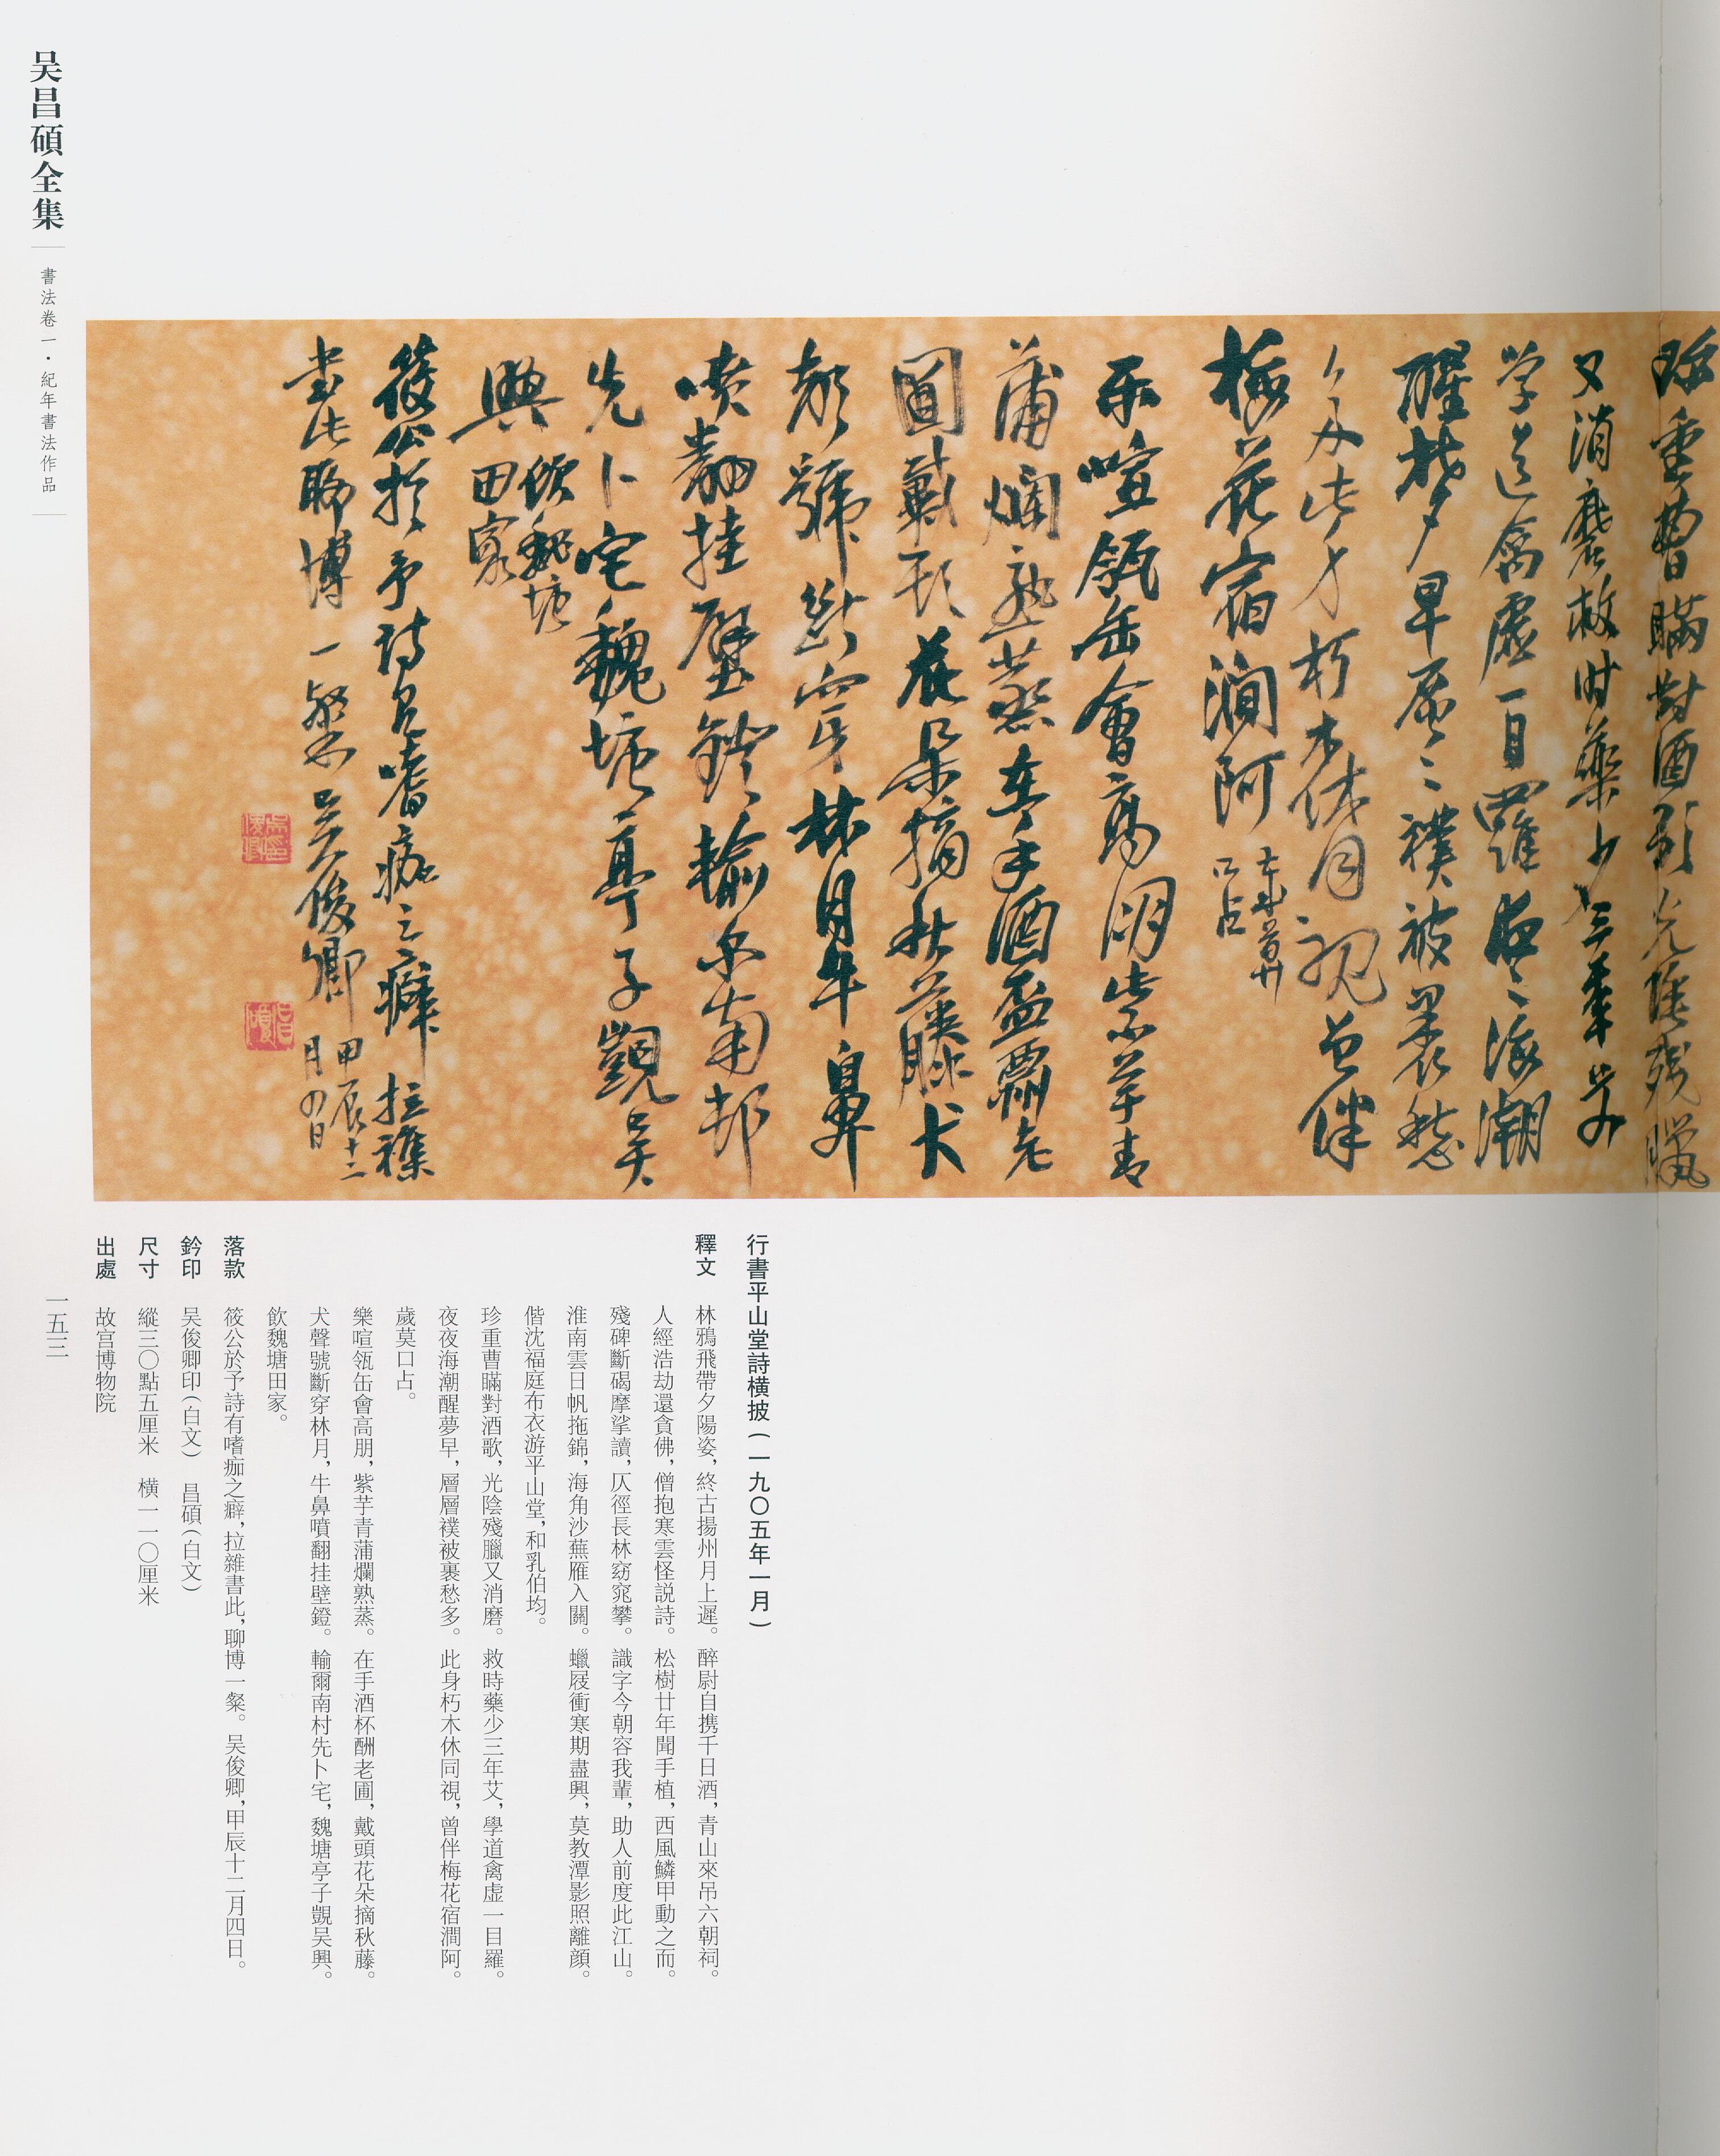 吴昌碩全集
書法卷一·紀年書法作品
珍重曹瞞對酒歌光陰殘臘
又消磨救時藥少三年艾
學道禽虛一目羅夜夜海潮
醒夢早層層襆被裹愁
多此身朽木休同視曾伴
梅花宿澗阿
歲莫
口占
樂喧瓴缶會高朋紫芋青
蒲爛熟蒸在手酒杯酬老
圃戴頭花朵摘秋藤犬
聲號斷穿林月牛鼻
噴翻挂壁鐙輸爾南邨
先卜宅魏塘亭子覬吴
興
飲魏塘
田家
筱公於予詩有嗜痂之癖拉雜
書此聊博一粲吴俊卿
甲辰十二
月四日
行書平山堂詩横披(一九〇五年一月)
釋文 林鴉飛帶夕陽姿,終古揚州月上遲。醉尉自携千日酒,青山來吊六朝祠。
人經浩劫還貪佛,僧抱寒雲怪説詩。松樹廿年聞手植,西風鱗甲動之而。
殘碑斷碣摩挲讀,仄徑長林窈窕攀。識字今朝容我輩,助人前度此江山。
淮南雲日帆拖錦,海角沙蕪雁入關。蠟屐衝寒期盡興,莫教潭影照離顔。
偕沈福庭布衣游平山堂,和乳伯均。
珍重曹瞞對酒歌,光陰殘臘又消磨。救時藥少三年艾,學道禽虛一目羅。
夜夜海潮醒夢早,層層襆被裹愁多。此身朽木休同視,曾伴梅花宿澗阿。
歲莫口占。
樂喧瓴缶會高朋,紫芋青蒲爛熟蒸。在手酒杯酬老圃,戴頭花朵摘秋藤。
犬聲號斷穿林月,牛鼻噴翻挂壁鐙。輸爾南村先卜宅,魏塘亭子覬吴興。
飲魏塘田家。
落款 筱公於予詩有嗜痂之癖,拉雜書此,聊博一粲。吴俊卿,甲辰十二月四日。
鈐印 吴俊卿印(白文) 昌碩(白文)
尺寸 縱三〇點五厘米 横一一〇厘米
出處 故宫博物院
一五三